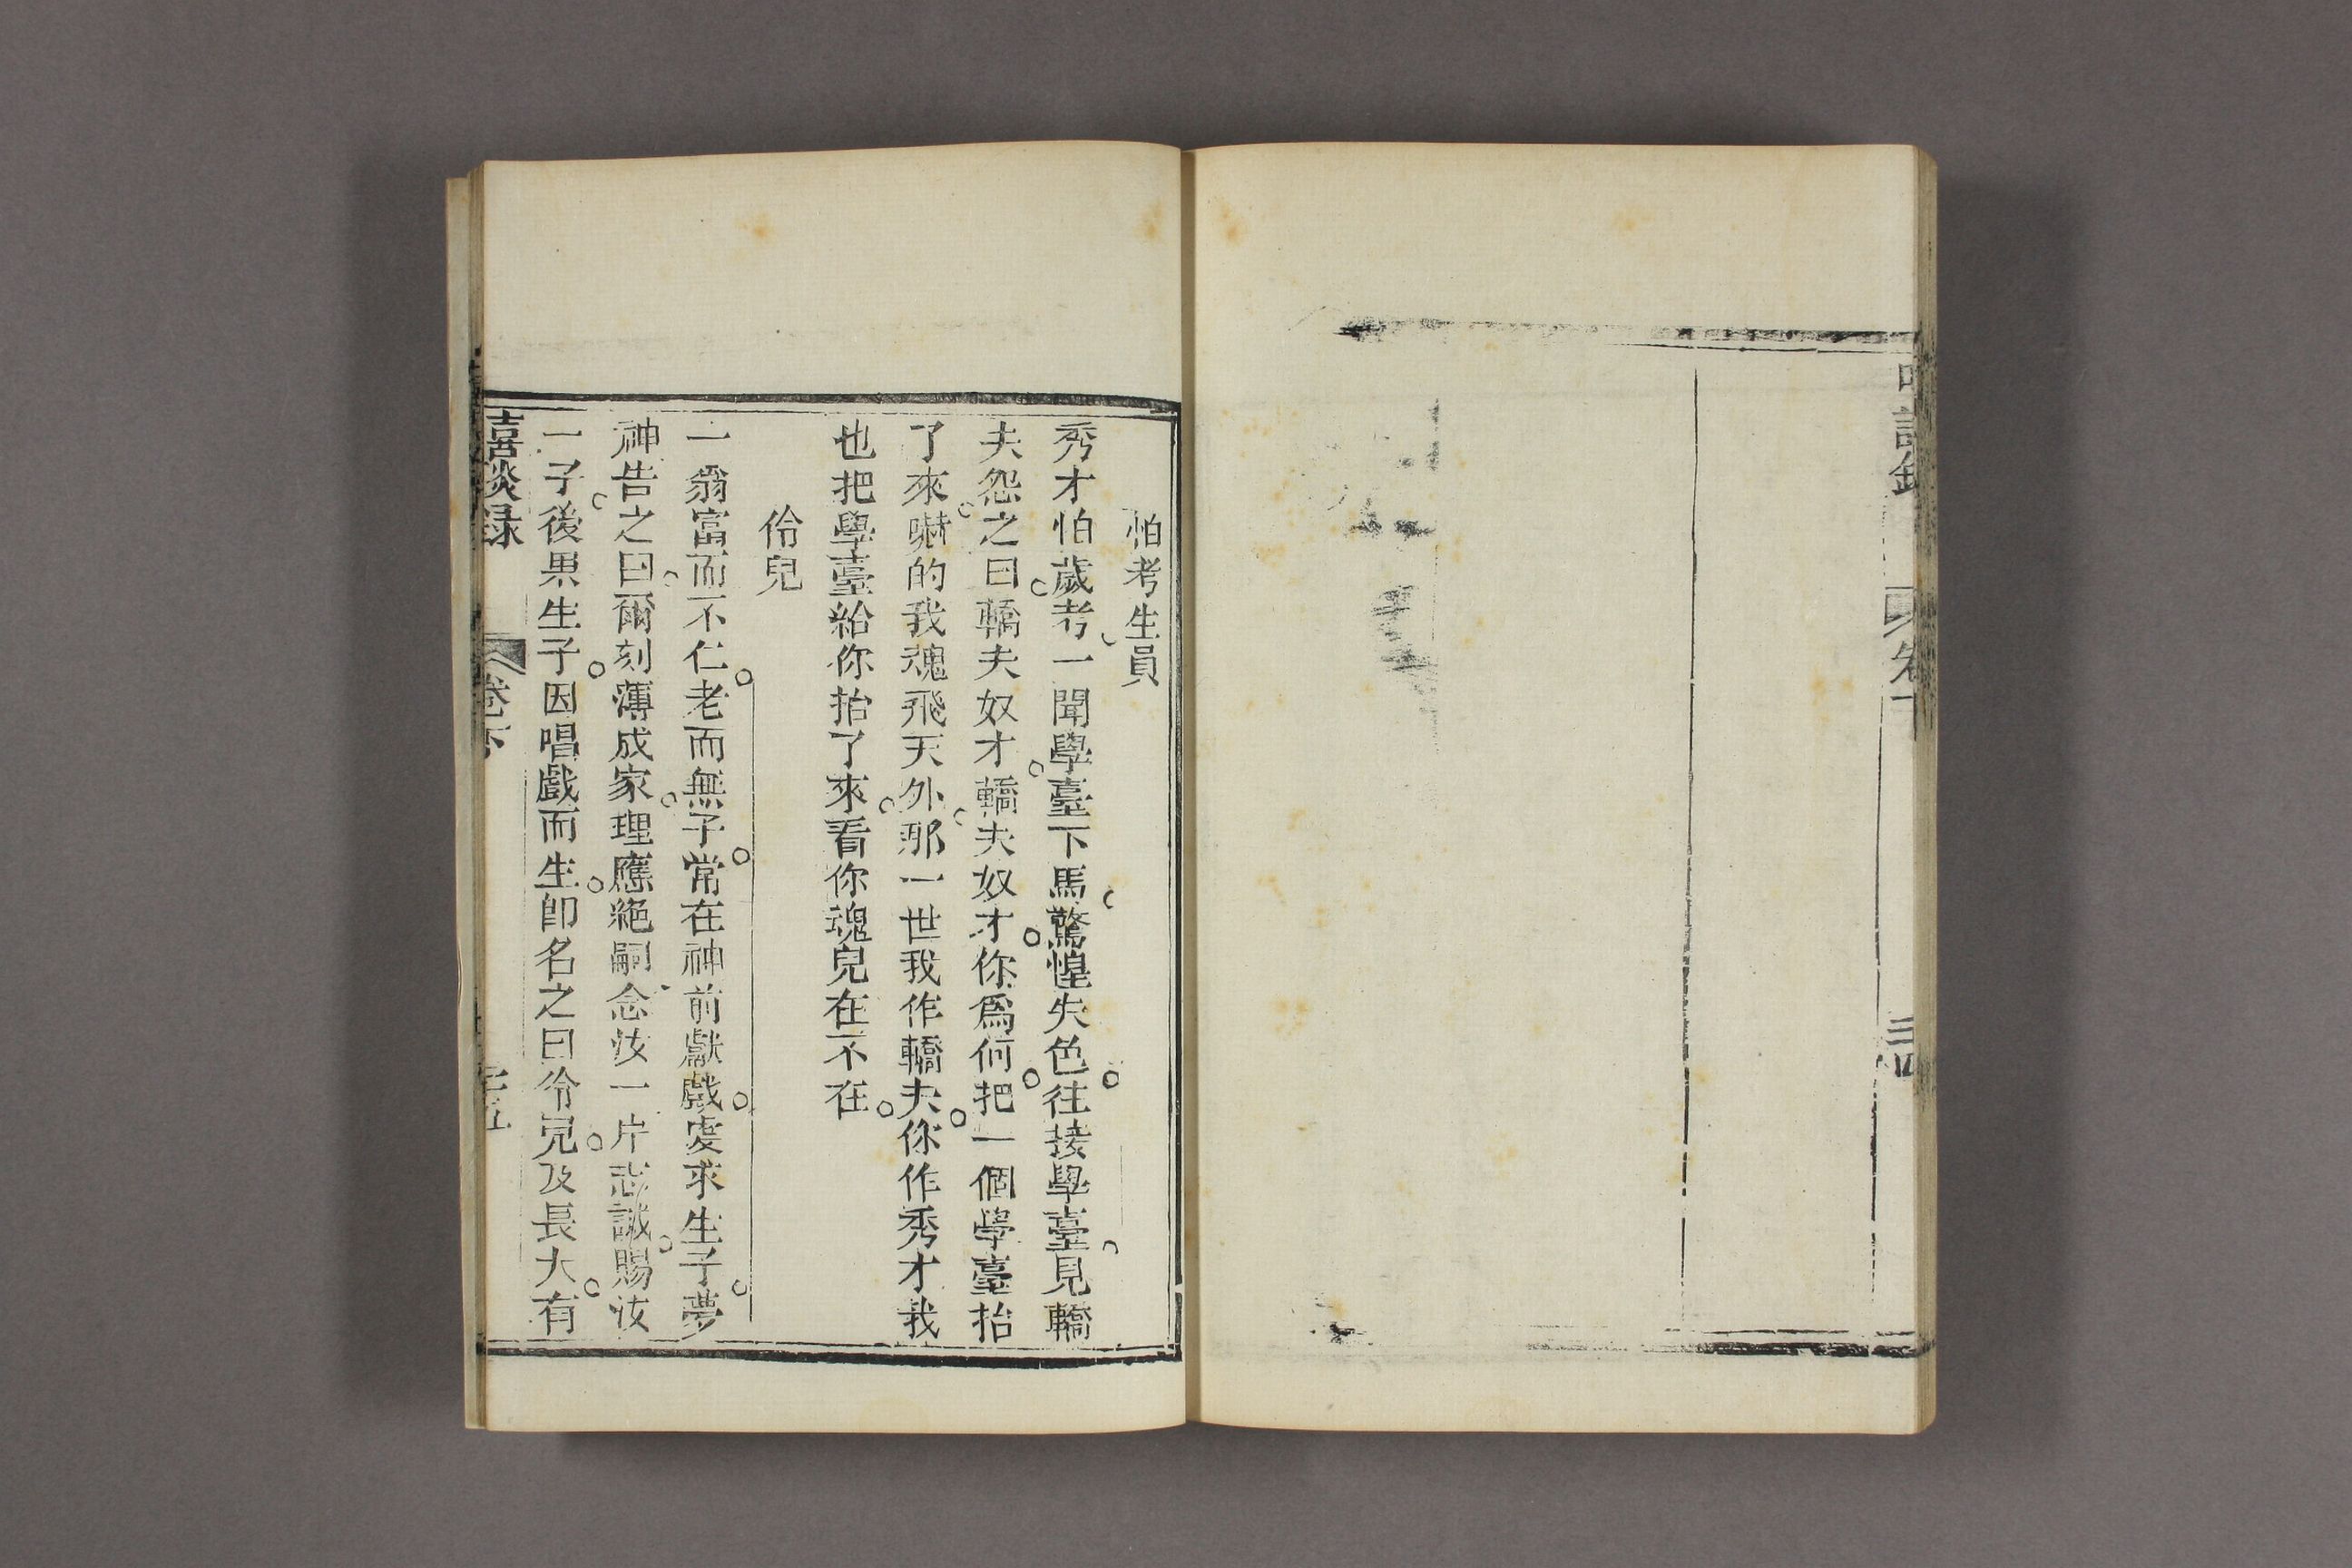 卷下
三四
怕考生員
秀才怕歲考一聞學臺下馬驚惶失色往接學臺見轎
夫怨之曰轎夫奴才轎夫奴才你爲何把一個學臺抬
了來嚇的我魂飛天外那一世我作轎夫你作秀才我
也把學臺給你抬了來看你魂兒在不在
伶兒
一翁富而不仁老而無子常在神前獻戲虔求生子夢
神告之曰爾刻薄成家理應絕嗣念汝一片志誠賜汝
一子後果生子因唱戲而生卽名之曰伶兒及長大有
喜談録
卷下
三五